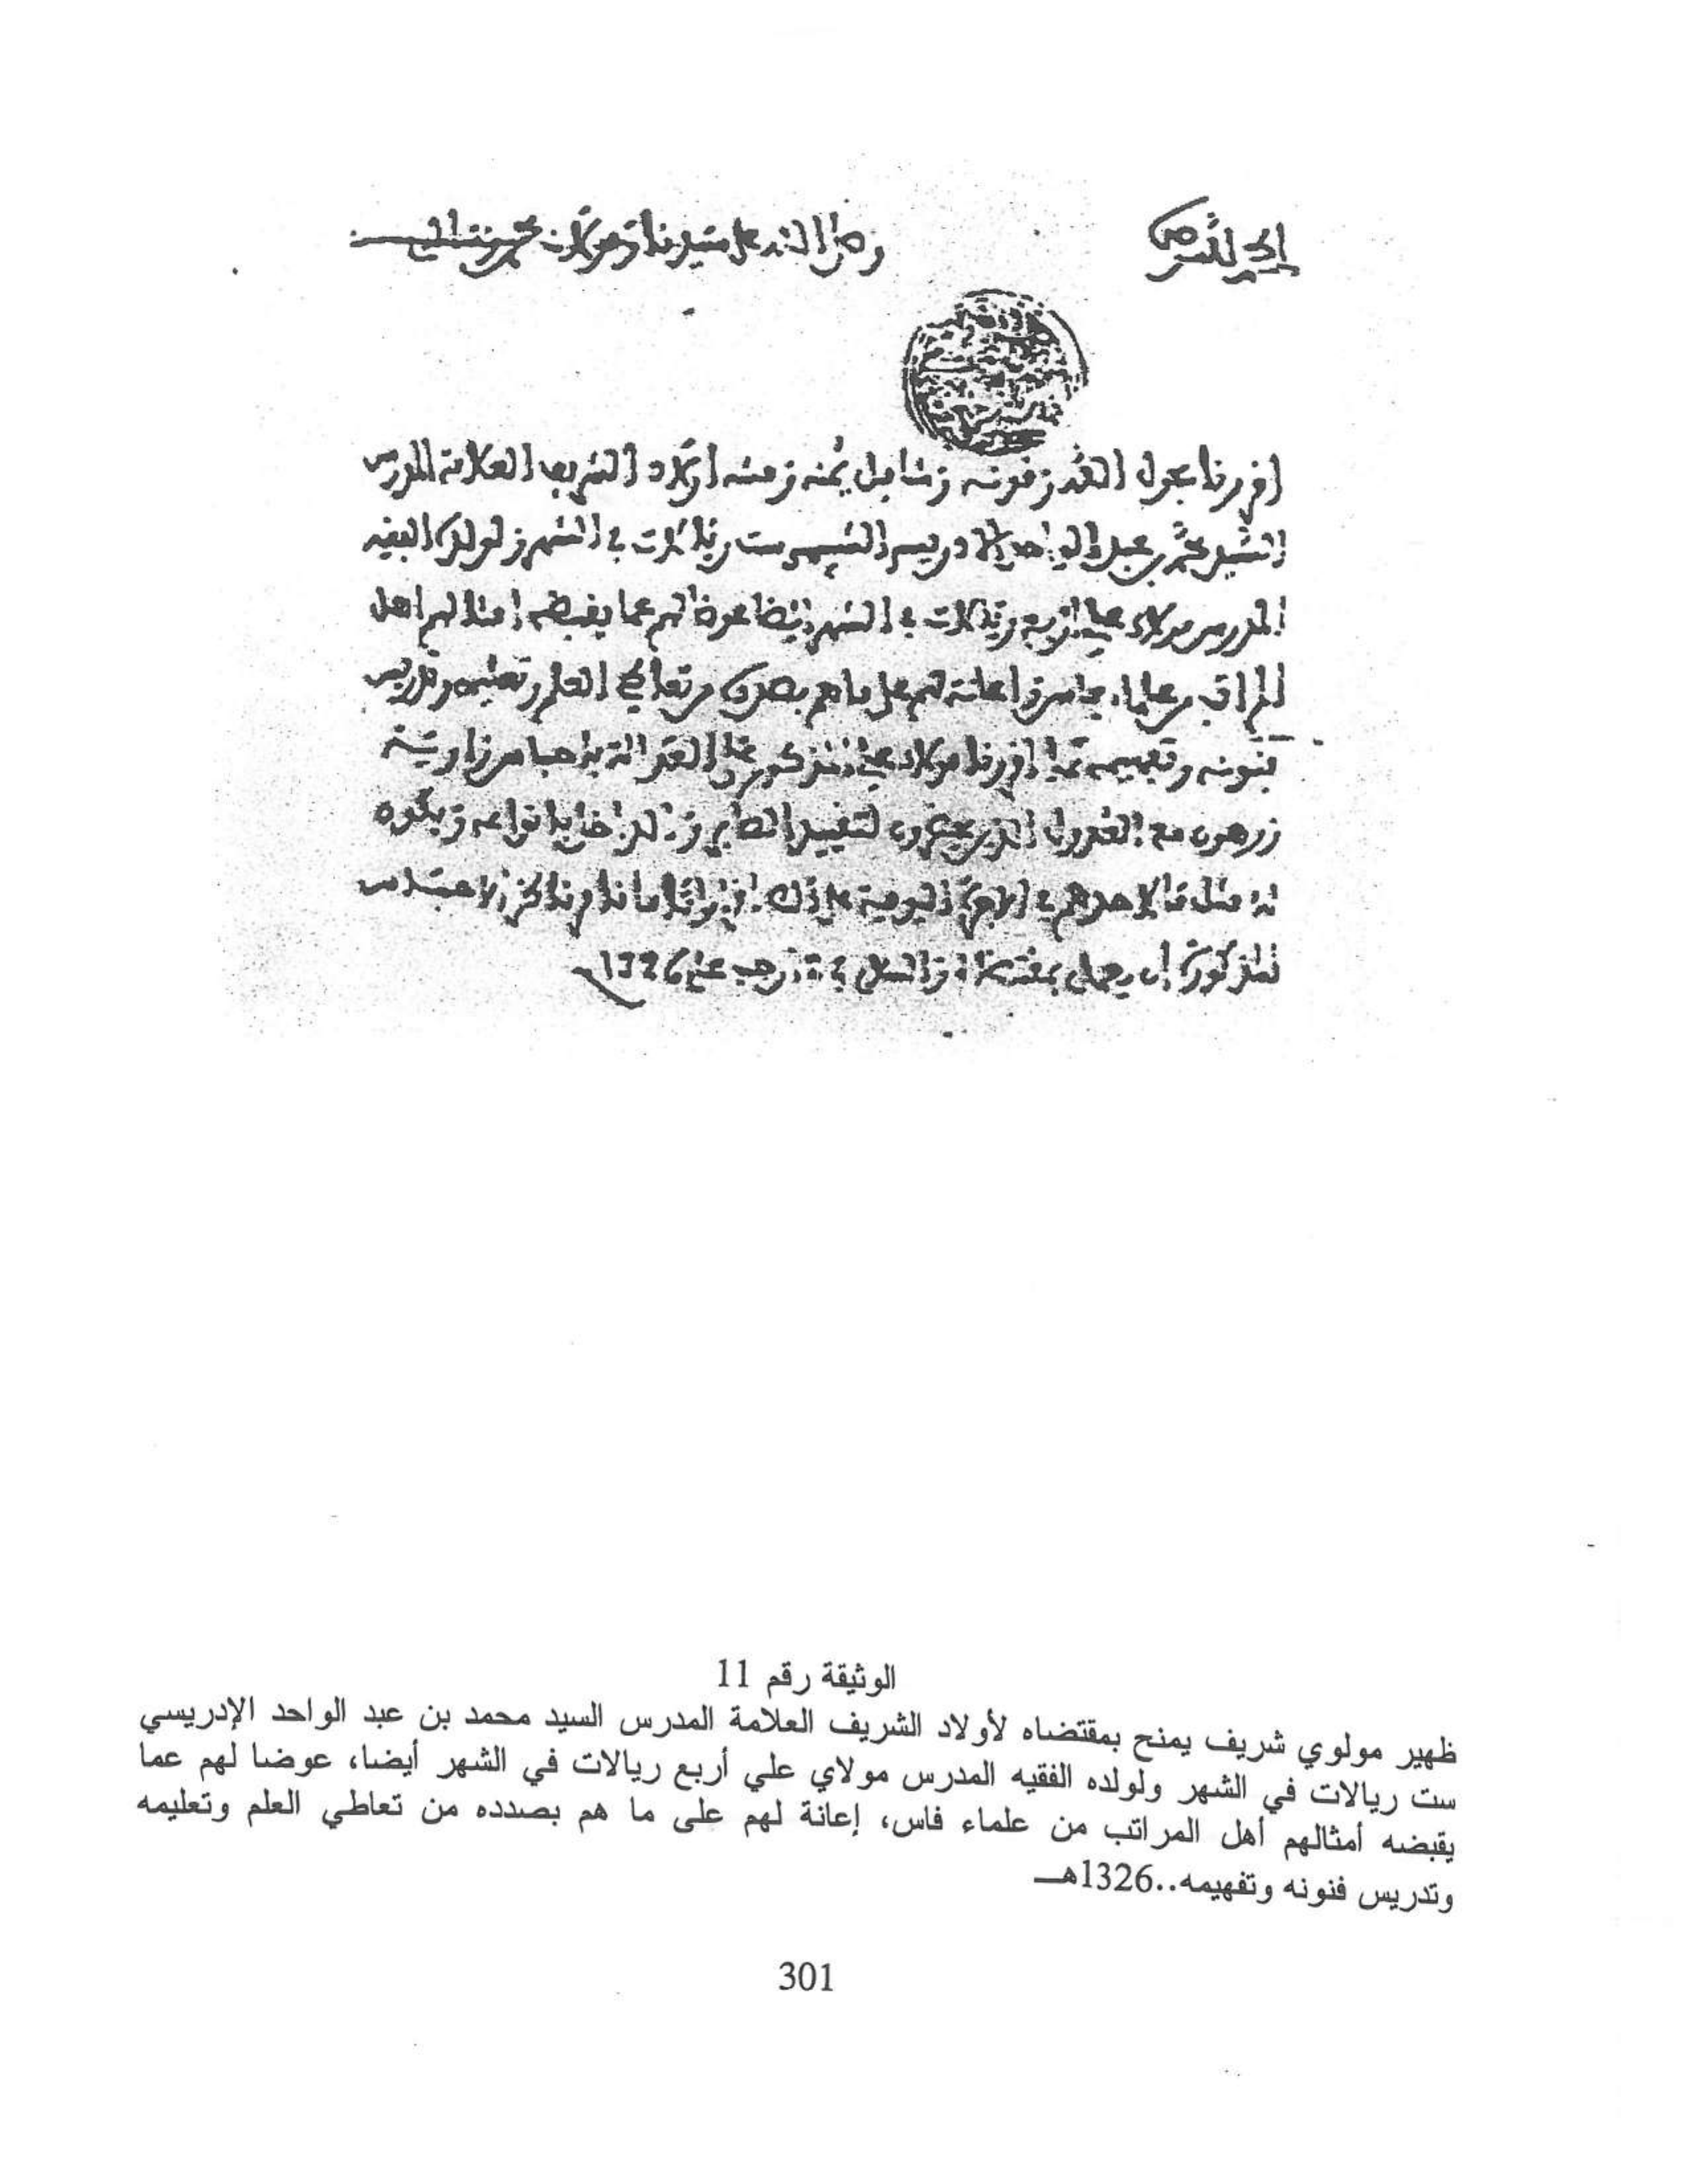 الحمد لله وحده
وصلى الله على سيدنا ومولانا محمد وآله
اقررنا بحول الله وقوته وشامل يمنه ومنته اولاد الشريف العلامة المدرس
السيد محمد بن عبد الواحد الادريسي ست ريالات في الشهر ولولده الفقيه
المدرس مولاي علي اربع ريالات في الشهر ايضا عوضا لهم عما يقبضه امثالهم اهل
المراتب من علماء فاس واعانة لهم على ما هم بصدده من تعاطي العلم وتعليمه وتدريس
فنونه وتفهيمه كما اقررنا مولاي علي المذكور على
زرهون مع العدول الذين
له مثل ما لاحدهم في
المذكورة ان يعمل بمقتضاه والسلام في رجب عام 1326
الوثيقة رقم 11
ظهير مولوي شريف يمنح بمقتضاه لأولاد الشريف العلامة المدرس السيد محمد بن عبد الواحد الإدريسي
ست ريالات في الشهر ولولده الفقيه المدرس مولاي علي أربع ريالات في الشهر أيضا، عوضا لهم عما
يقبضه أمثالهم أهل المراتب من علماء فاس، إعانة لهم على ما هم بصدده من تعاطي العلم وتعليمه
وتدريس فنونه وتفهيمه..1326هـ
301